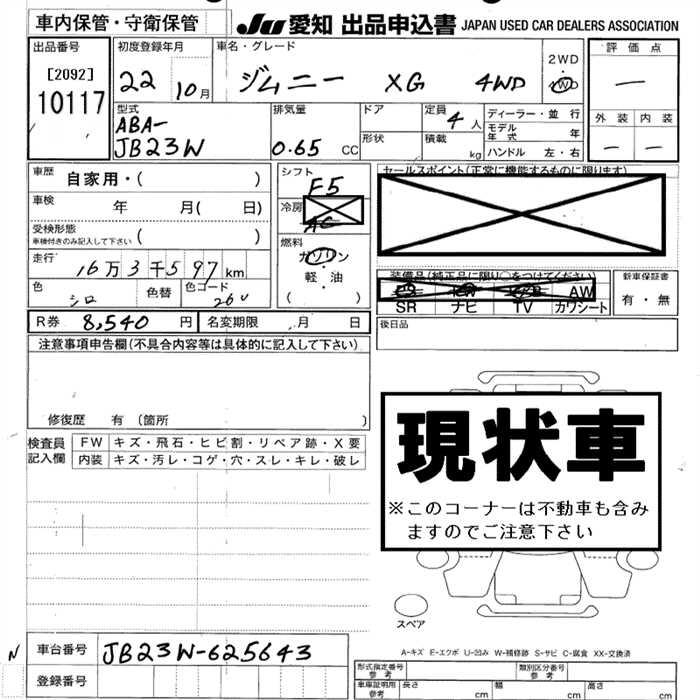 車内保管・守衛保管 JU 愛知 出品申込書 JAPAN USED CAR DEALERS ASSOCIATION
出品番号 初度登録年月 車名・グレード 評価点
[2092] 22 10月 ジムニー XG 4WD 2WD・4WD ー
10117 外装 内装
型式 排気量 ドア 定員 4人 ディーラー・並行
ABA- モデル年式 年
JB23W 0.65 CC 形状 積載 kg ハンドル 左・右 ー ー
車歴 自家用・( ) シフト F5 セールスポイント(正常に機能するものに限ります)
車検 年 月( 日) 冷房 AC
受検形態 ( )
車検付きのみ記入して下さい
燃料 ガソリン・軽・油 ( )
走行 16万3千597km
色 シロ 色替 色コード 26U
装備品(純正品に限り○をつけてください) 新車保証書
AW 有・無
SR ナビ TV カワシート
R券 8,540 円 名変期限 月 日 後日品
注意事項申告欄(不具合内容等は具体的に記入して下さい)
修復歴 有(箇所 )
現状車
※このコーナーは不動車も含み
ますのでご注意下さい
検査員記入欄 FW キズ・飛石・ヒビ割・リペア跡・X要
内装 キズ・汚レ・コゲ・穴・スレ・キレ・破レ
スペア
A-キズ E-エクボ U-凹み W-補修跡 S-サビ C-腐食 XX-交換済
N 車台番号 JB23W-625643
登録番号
形式指定番号 参考 類別区分番号 参考
車庫証明用 参考 長さ cm 幅 cm 高さ cm